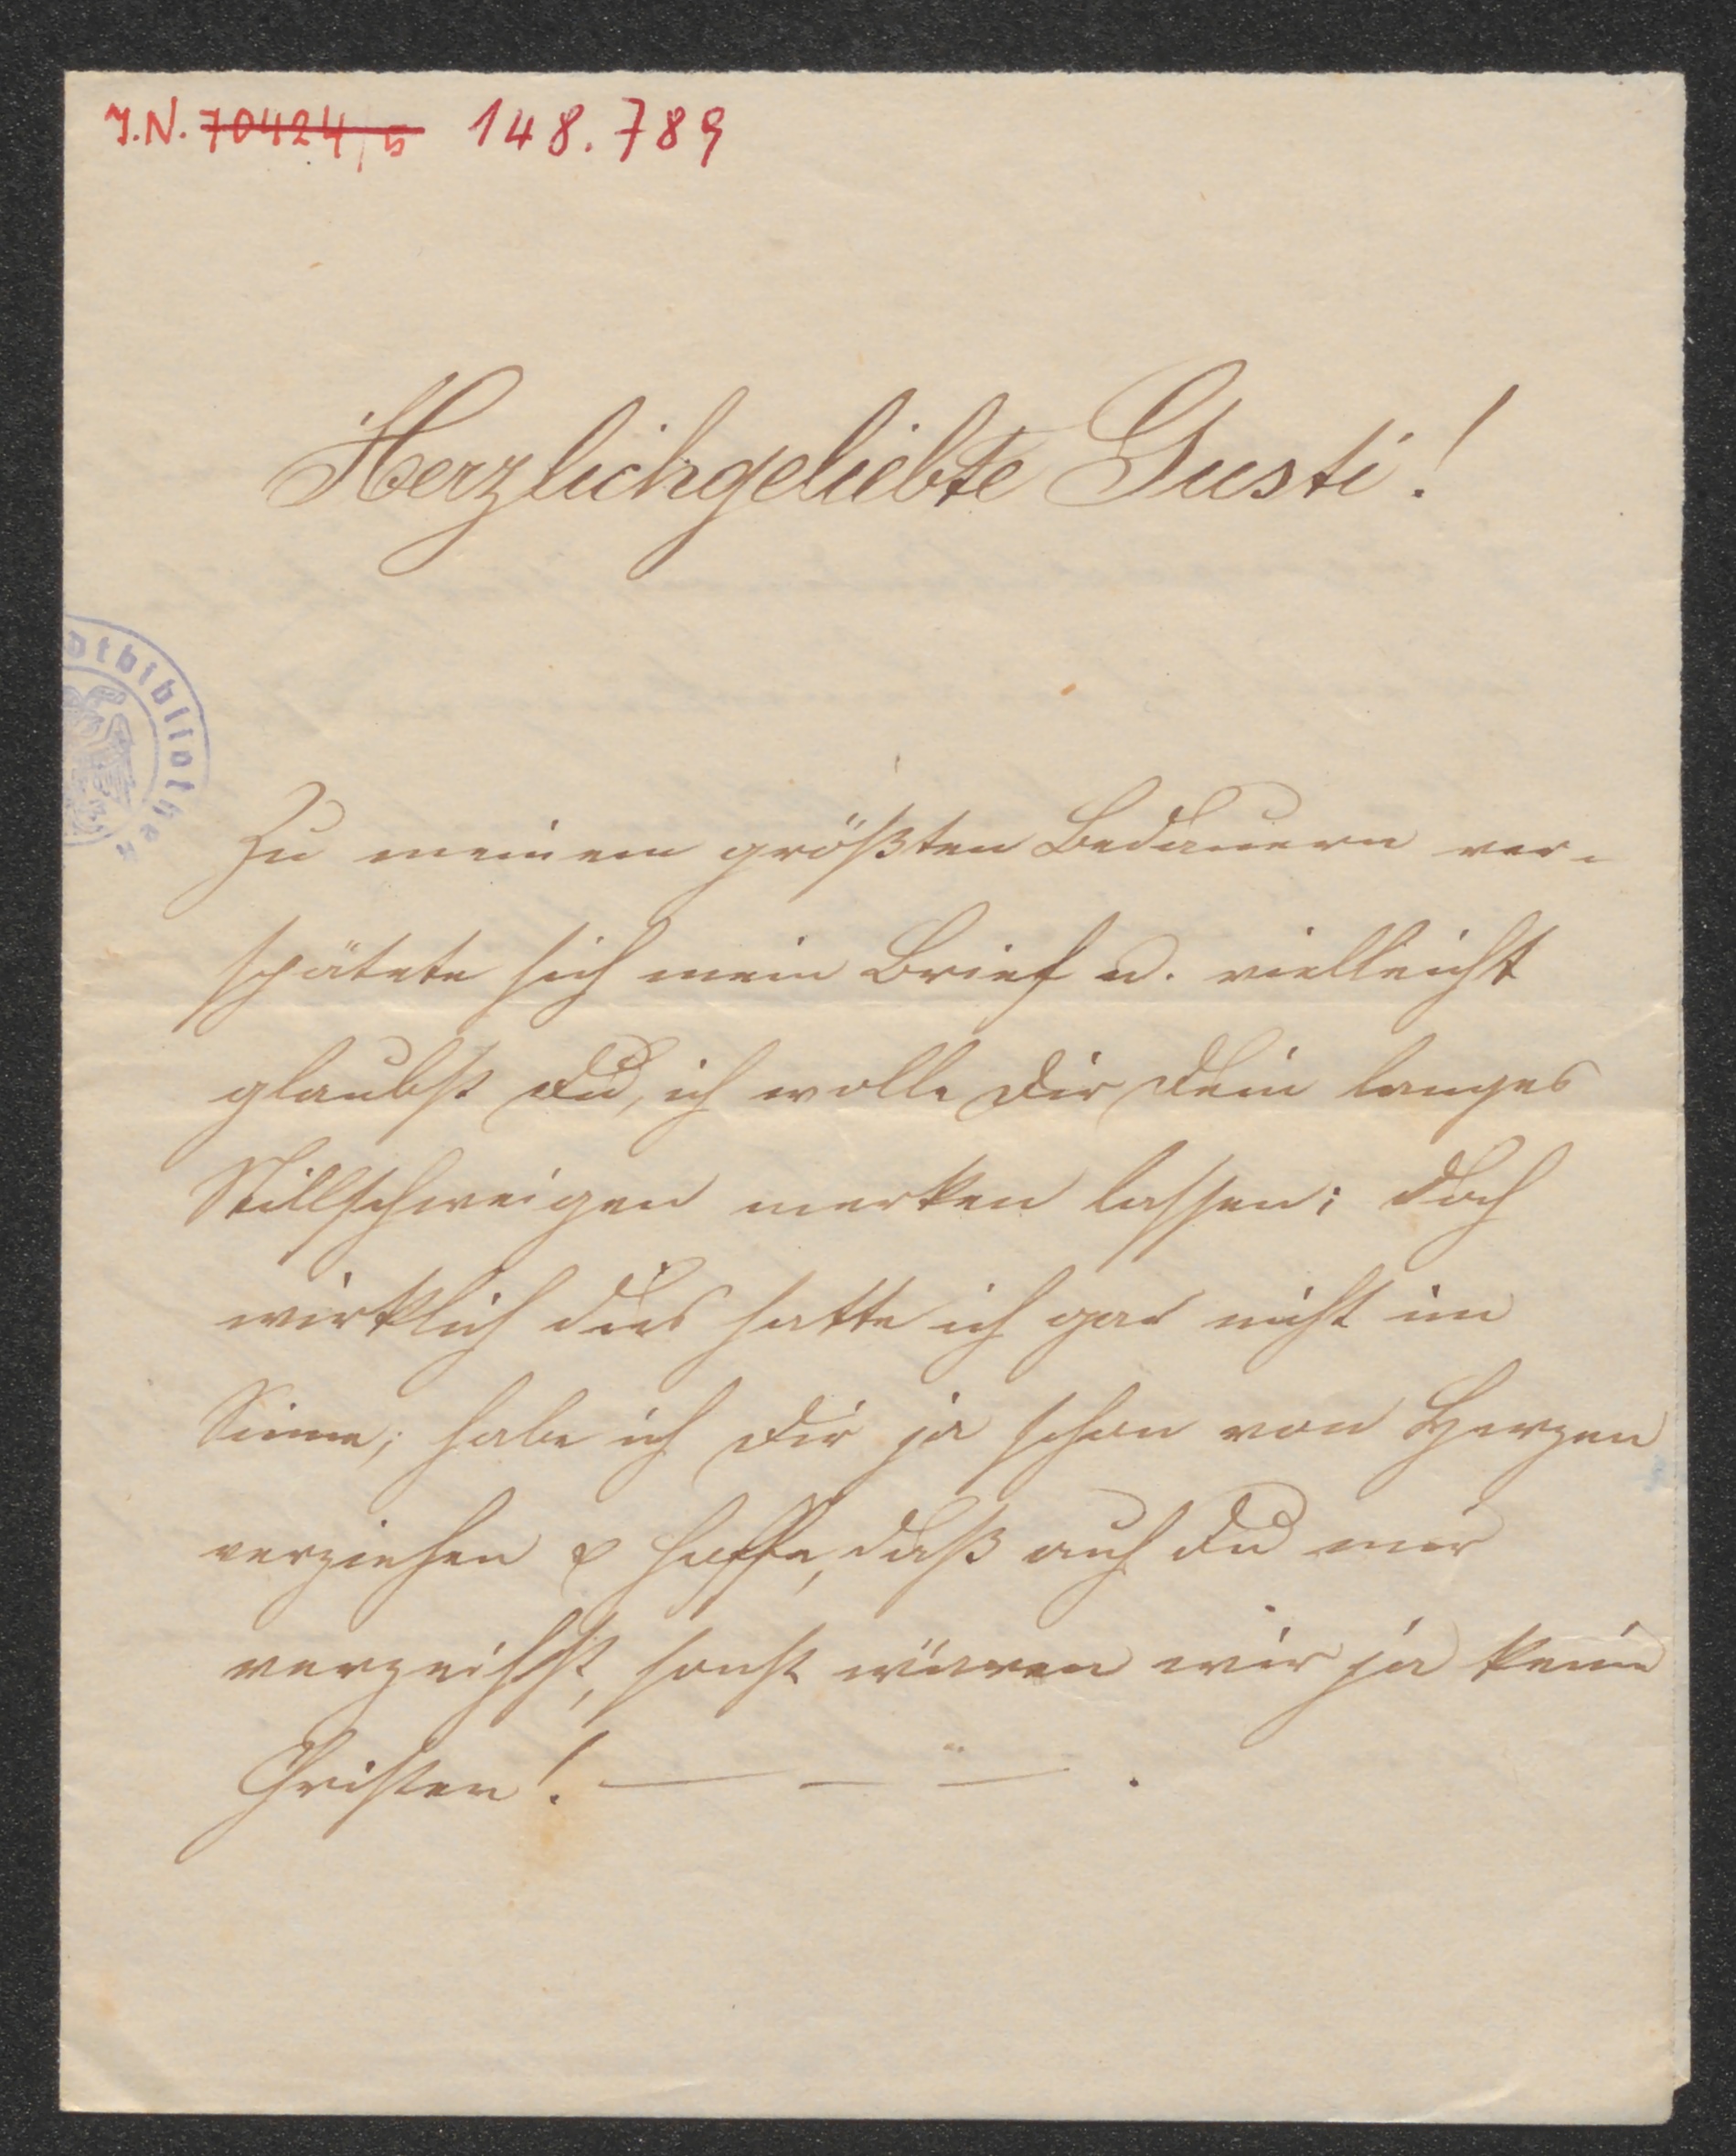 J.N. 70424/5 148.789
Herzlichgeliebte Gusti!
Stadtbibliothek
Zu meinem größten Bedauern ver-
spätete sich mein Brief u. vielleicht
glaubst Du, ich wolle Dir Dein langes
Stillschweigen merken lassen; doch
wirklich dies hatte ich gar nicht im
Sinne; habe ich Dir ja schon von Herzen
verziehen & hoffe, daß auch Du mir
verzeihst, sonst wären wir ja keine
Christen! — — — .